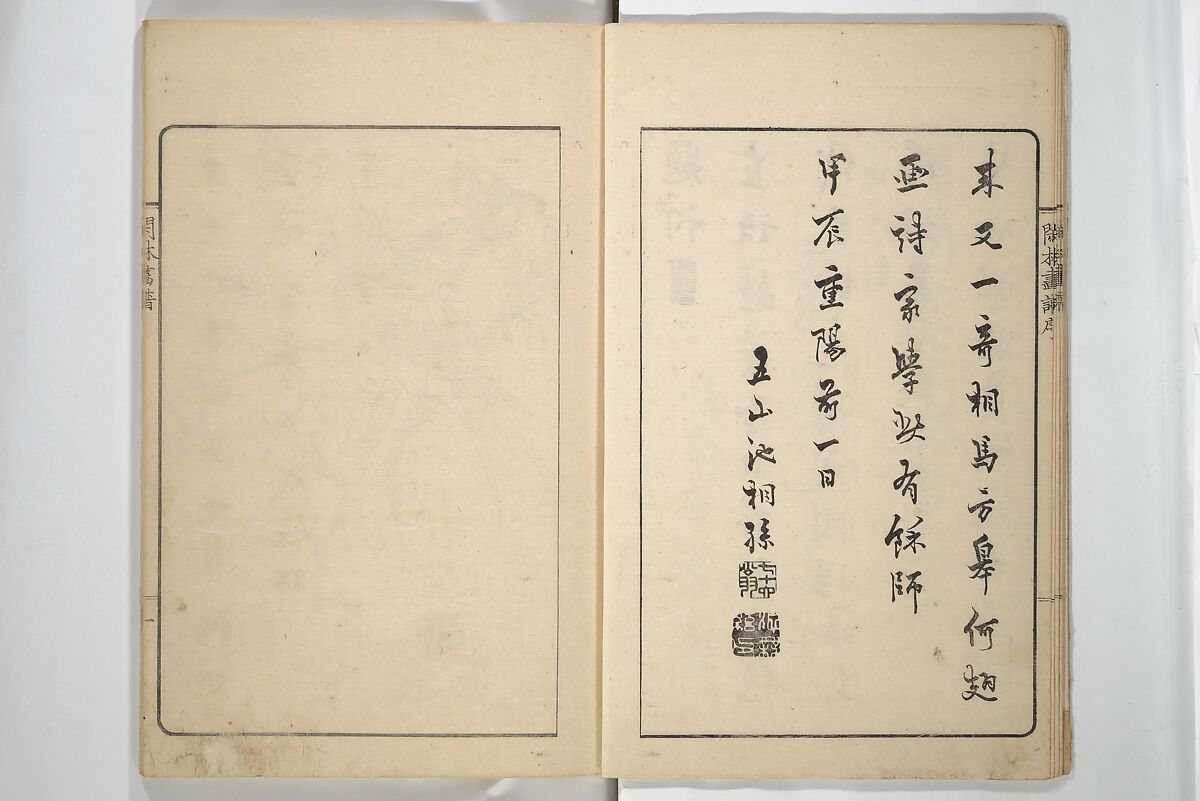 来又一奇相馬方皋何翅
画詩家學此有餘師
甲辰重陽前一日
五山池桐孫
閑林畫譜序
閑林畫譜
一